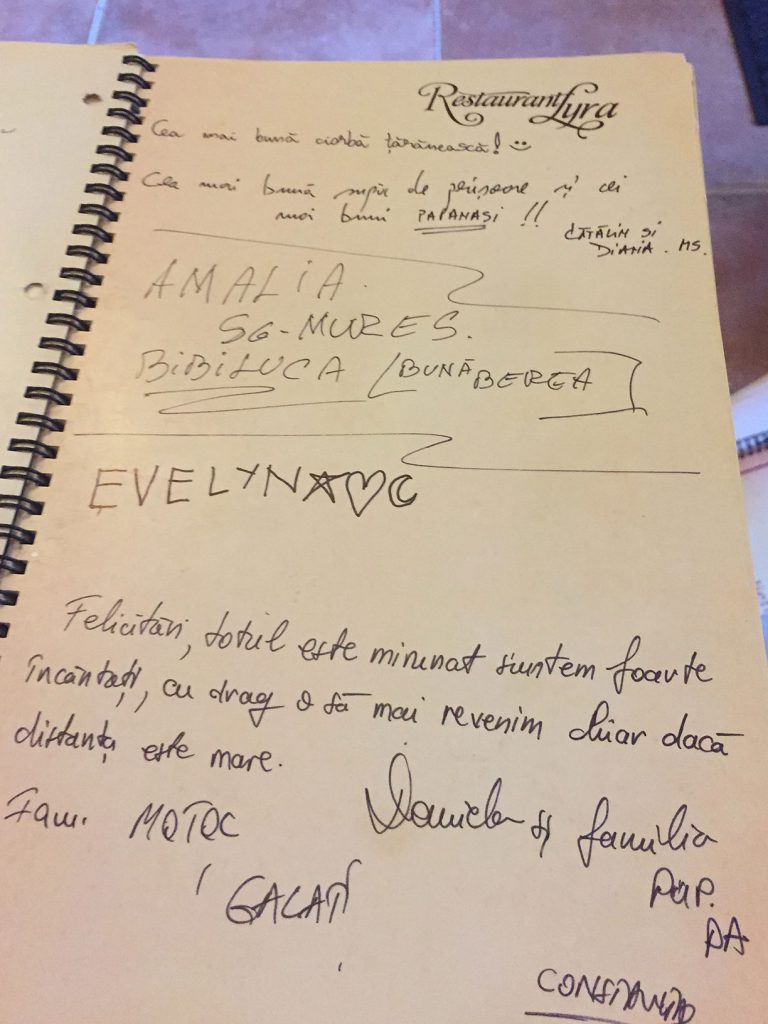 Restaurant Lyra
Cea mai bună ciorbă țărănească! :)
Cea mai bună supă de perișoare și cei
mai buni PAPANAȘI !!
CĂTĂLIN ȘI
DIANA. MS.
AMALIA.
SG-MUREȘ.
BIBILUCA / BUNĂ BEREA
EVELYN ☆♡☾
Felicitări, totul este minunat suntem foarte
încântați, cu drag o să mai revenim chiar dacă
distanța este mare.
Fam. MOTOC
GALAȚI
Daniela și familia
CONSTANȚA